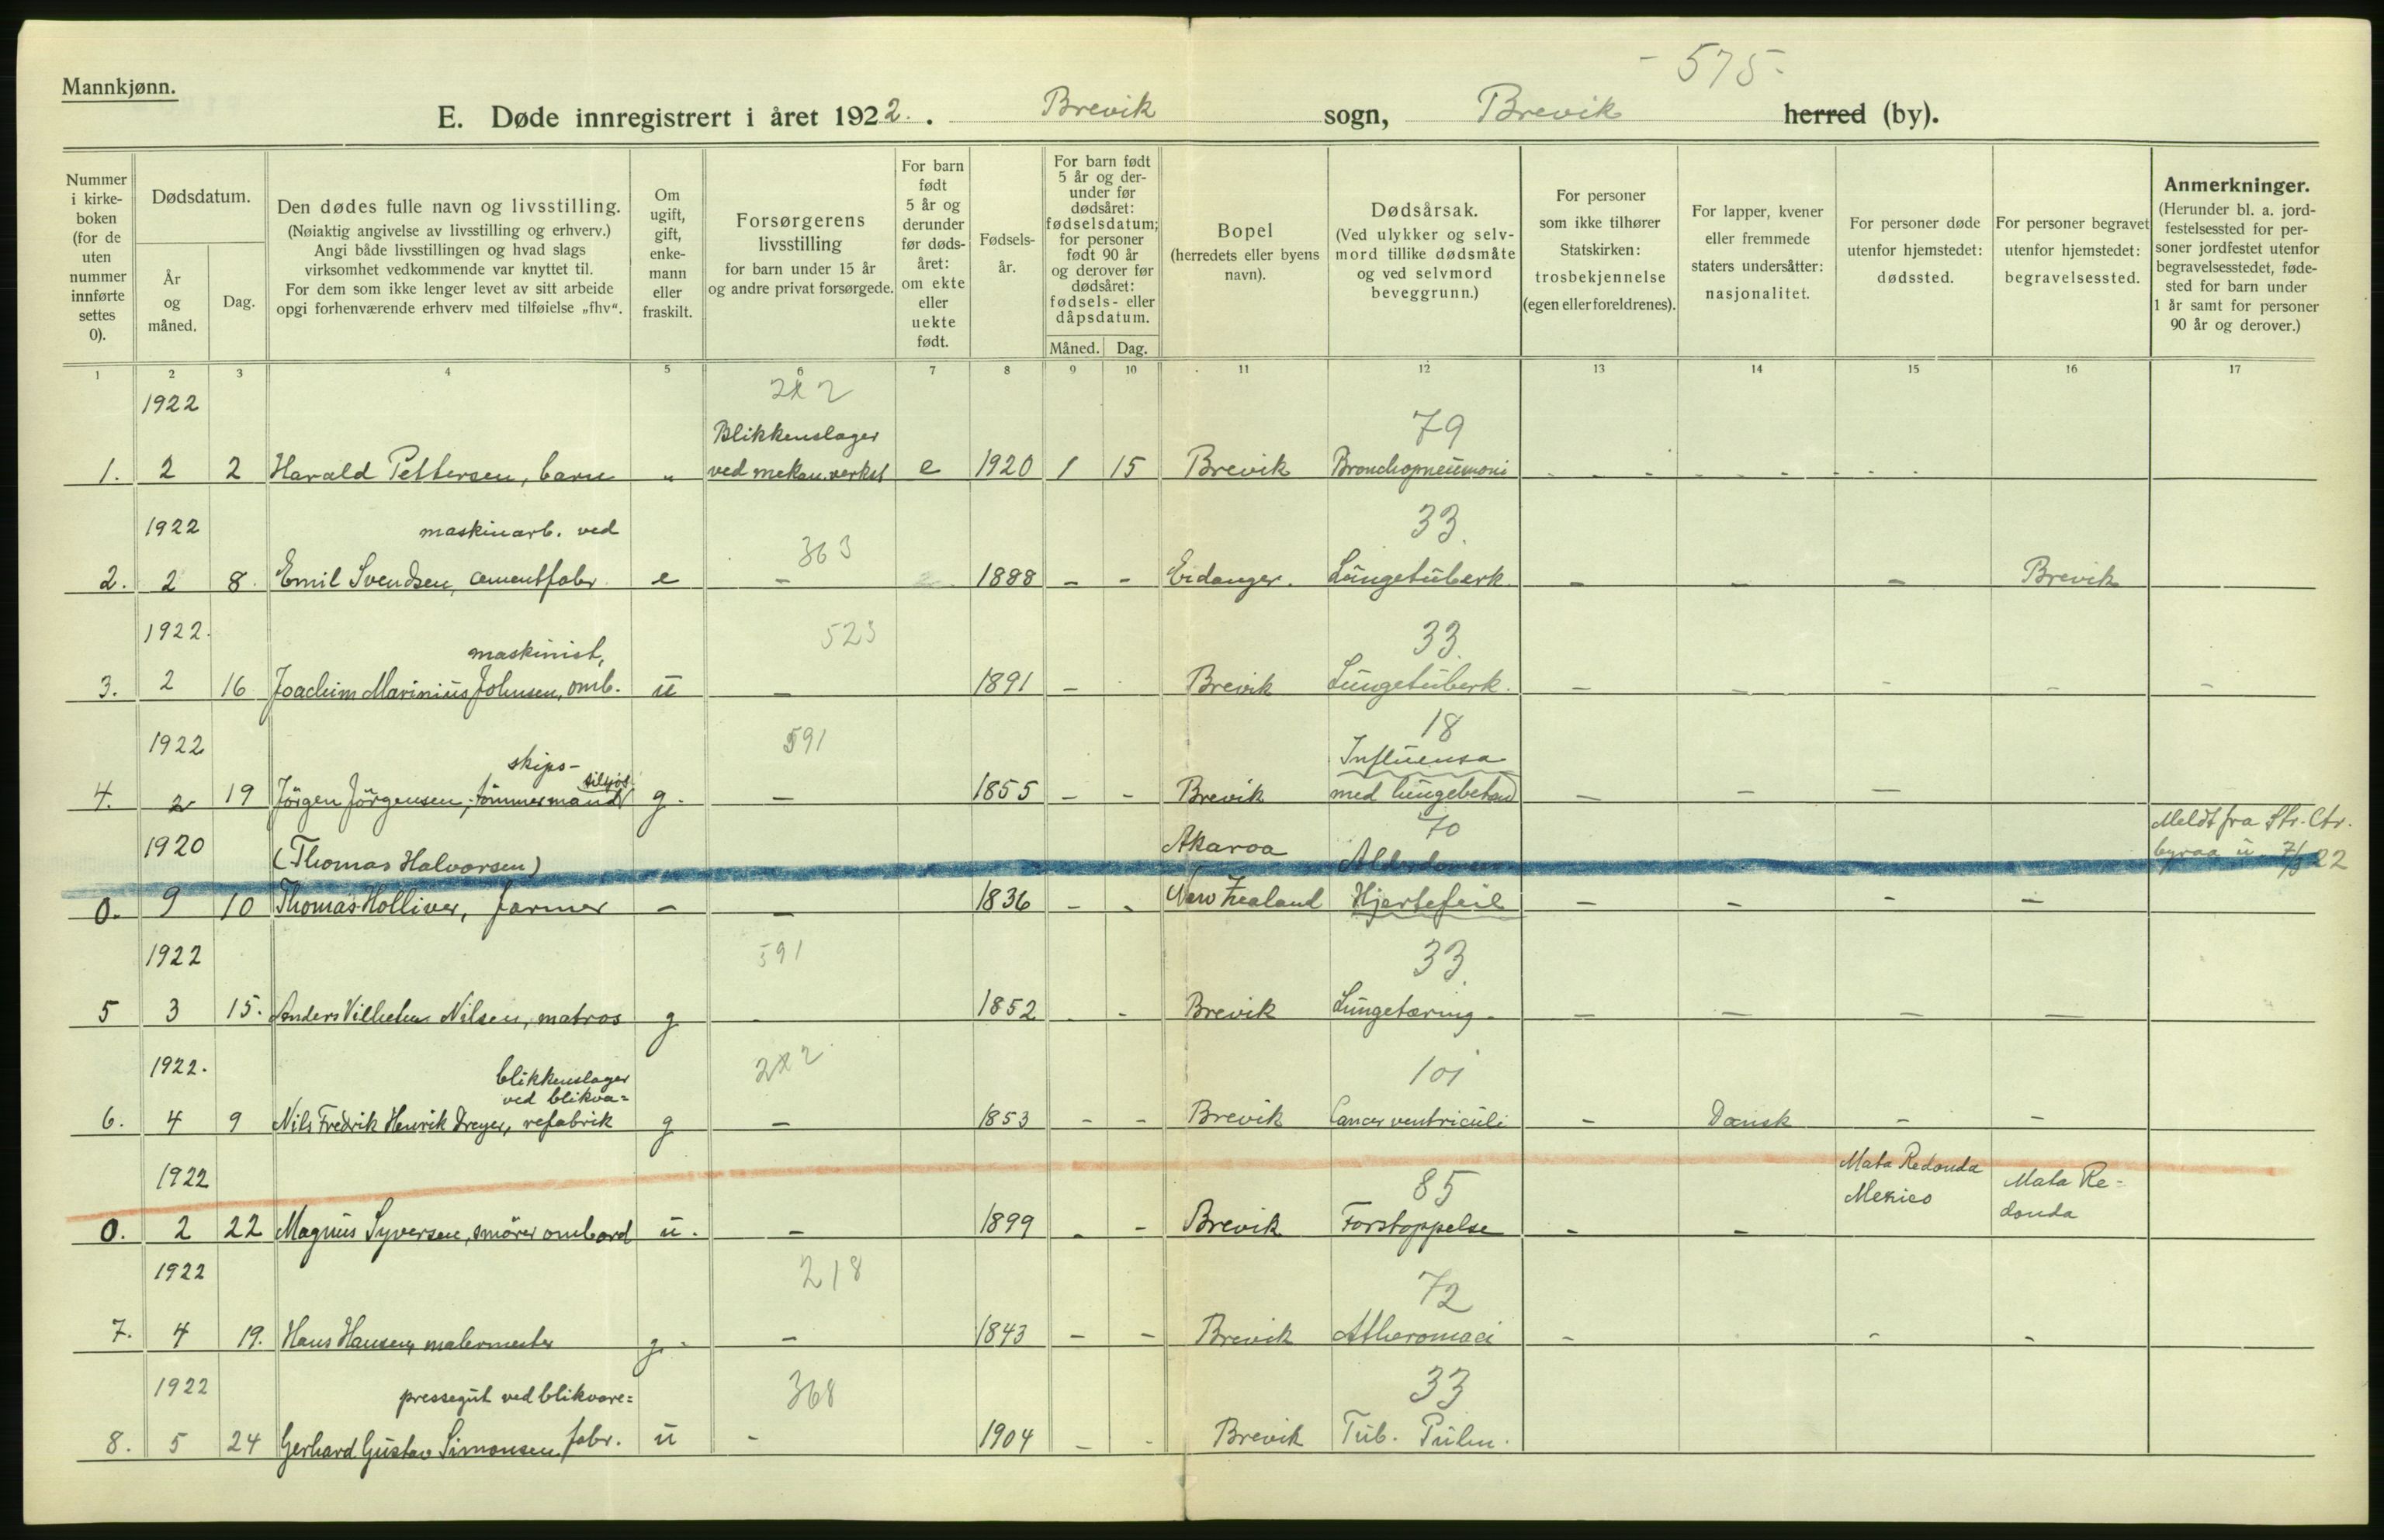 - 575 -
Mannkjønn.
E. Døde innregistrert i året 1922. Brevik sogn, Brevik herred (by).
Nummer i kirke- boken (for de uten nummer innførte settes 0).
Dødsdatum.
År og måned.
Dag.
Den dødes fulle navn og livsstilling.
(Nøiaktig angivelse av livsstilling og erhverv.)
Angi både livsstillingen og hvad slags
virksomhet vedkommende var knyttet til.
For dem som ikke lenger levet av sitt arbeide
opgi forhenværende erhverv med tilføielse „fhv“.
Om ugift, gift, enke- mann eller fraskilt.
Forsørgerens
livsstilling
for barn under 15 år
og andre privat forsørgede.
For barn født 5 år og derunder før døds- året: om ekte eller uekte født.
Fødsels- år.
For barn født 5 år og der- under før dødsåret: fødselsdatum; for personer født 90 år og derover før dødsåret: fødsels- eller dåpsdatum.
Måned. Dag.
Bopel
(herredets eller byens
navn).
Dødsårsak.
(Ved ulykker og selv-
mord tillike dødsmåte
og ved selvmord
beveggrunn.)
For personer
som ikke tilhører
Statskirken:
trosbekjennelse
(egen eller foreldrenes).
For lapper, kvener
eller fremmede
staters undersåtter:
nasjonalitet.
For personer døde
utenfor hjemstedet:
dødssted.
For personer begravet
utenfor hjemstedet:
begravelsessted.
Anmerkninger.
(Herunder bl. a. jord-
festelsessted for per-
soner jordfestet utenfor
begravelsesstedet, føde-
sted for barn under
1 år samt for personer
90 år og derover.)
1 2 3 4 5 6 7 8 9 10 11 12 13 14 15 16 17
1922 79
Blikkenslager
1. 2 2 Harald Pettersen, barn " ved mekan. verkst e 1920 1 15 Brevik Bronchopneumoni - - - - - - - -
1922 maskinarb. ved 363 33.
2. 2 8. Emil Svendsen, cementfabr. e - 1888 - - Eidanger. Lungetuberk. - - - Brevik
1922. maskinist, 523 33.
3. 2 16 Joachim Marinius Johnsen, omb. u - 1891 - Brevik Lungetuberk. - - - - -
1922 skips- 591 18
Influensa
4. 2 19 Jörgen Jörgensen, tömmermand g. - 1855 - - Brevik med lungebetend - - -
1920 (Thomas Halvorsen) Akaroa 70 Alderdoms Meldt fra St. Ctr.
byraa u 7/3 22
0. 9 10 Thomas Holliver, farmer - - 1836 - - New Zealand Hjertefeil - - - -
1922 591 33.
5 3 15. Anders Vilhelm Nilsen, matros g - 1852 - - Brevik Lungetæring. - - - -
1922. blikkenslager 101
ved blikva=
6. 4 9 Nils Fredrik Henrik Dreyer, refabrik g - 1853 - - Brevik Cancer ventriculi - Dansk - -
1922 85 Mata Redonda Mexico Mata Re= donda
0. 2 22 Magnus Syversen, smörer ombord u. - 1899 - - Brevik Forstoppelse - -
1922 218 72
7. 4 19. Hans Hansen, malermester g. - 1843 - - Brevik Atheromaci - - -
1922 pressegut ved blikvare= 368 33
8. 5 24 Gerhard Gustav Simonsen, fabr. u - 1904 - - Brevik Tub. Pulm.